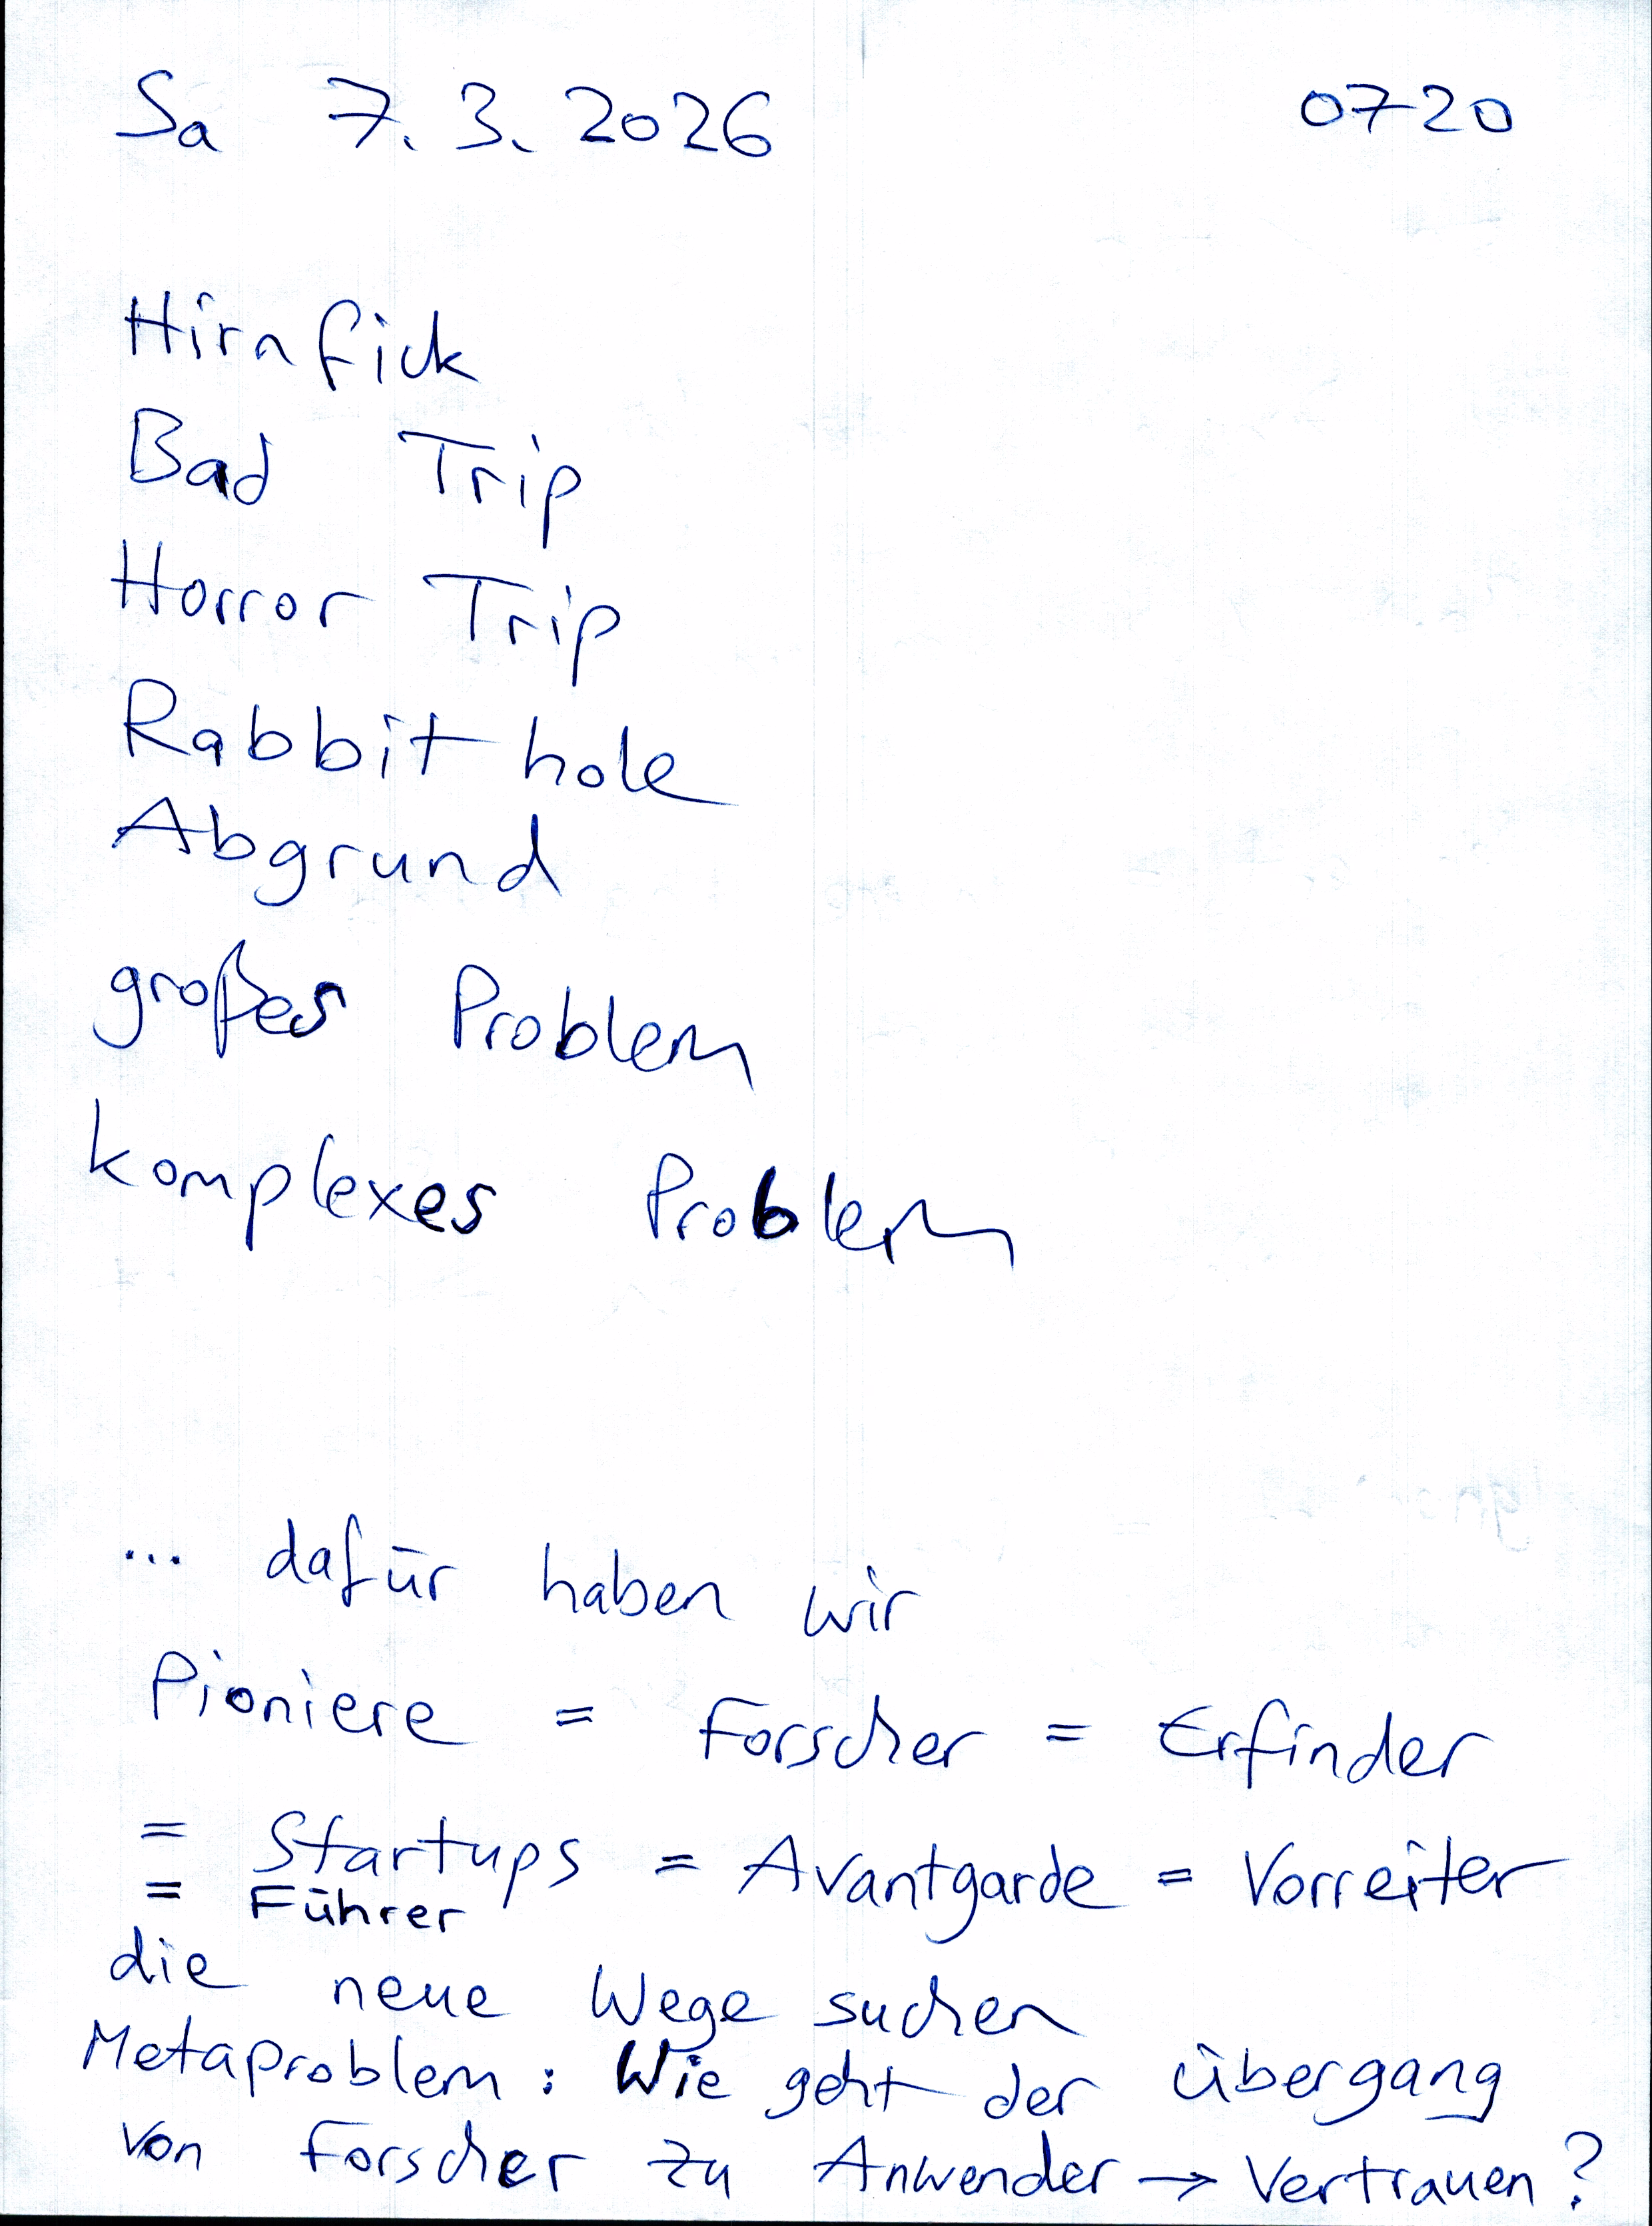 Sa 7.3.2026 0720
Hirnfick
Bad Trip
Horror Trip
Rabbit hole
Abgrund
großes Problem
komplexes Problem
... dafür haben wir
Pioniere = Forscher = Erfinder
= Startups = Avantgarde = Vorreiter
= Führer
die neue Wege suchen
Metaproblem: Wie geht der übergang
von Forscher zu Anwender → Vertrauen?